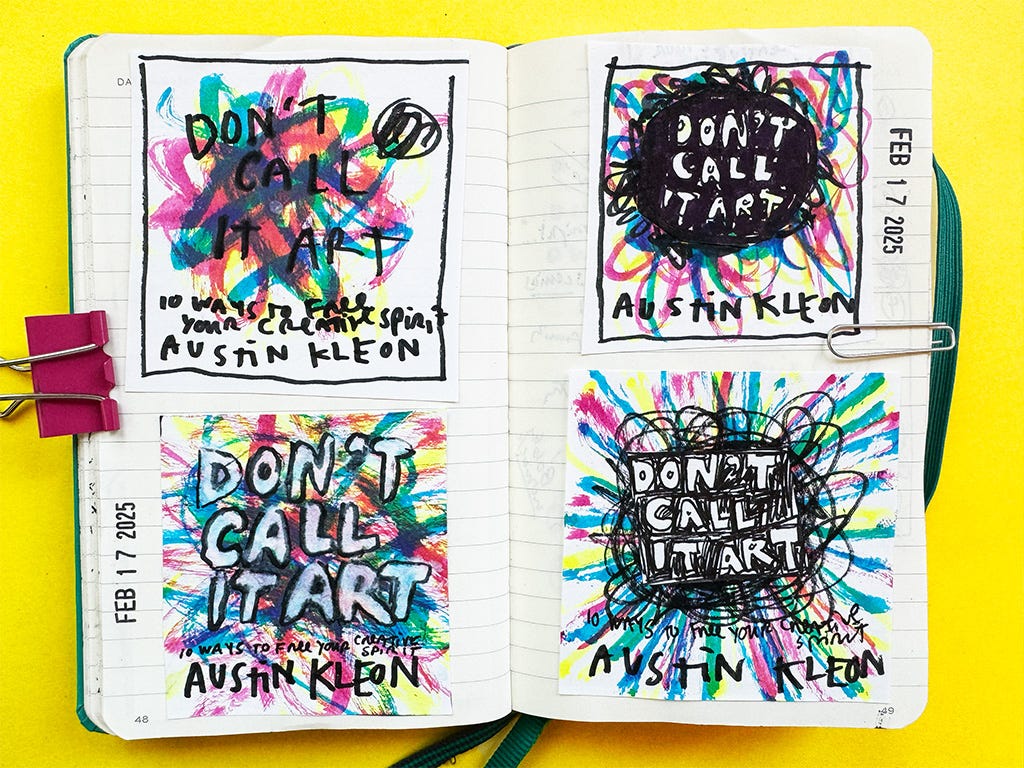 DA
DON'T
CALL
IT ART
10 WAYS TO FREE
YOUR CREATIVE SPIRIT
AUSTIN KLEON
DON'T
CALL
IT ART
10 WAYS TO FREE YOUR CREATIVE
SPIRIT
AUSTIN KLEON
FEB 17 2025
48
DON'T
CALL
IT ART
AUSTIN KLEON
FEB 17 2025
DON'T
CALL
IT ART
10 WAYS TO FREE YOUR CREATIVE
SPIRIT
AUSTIN KLEON
49